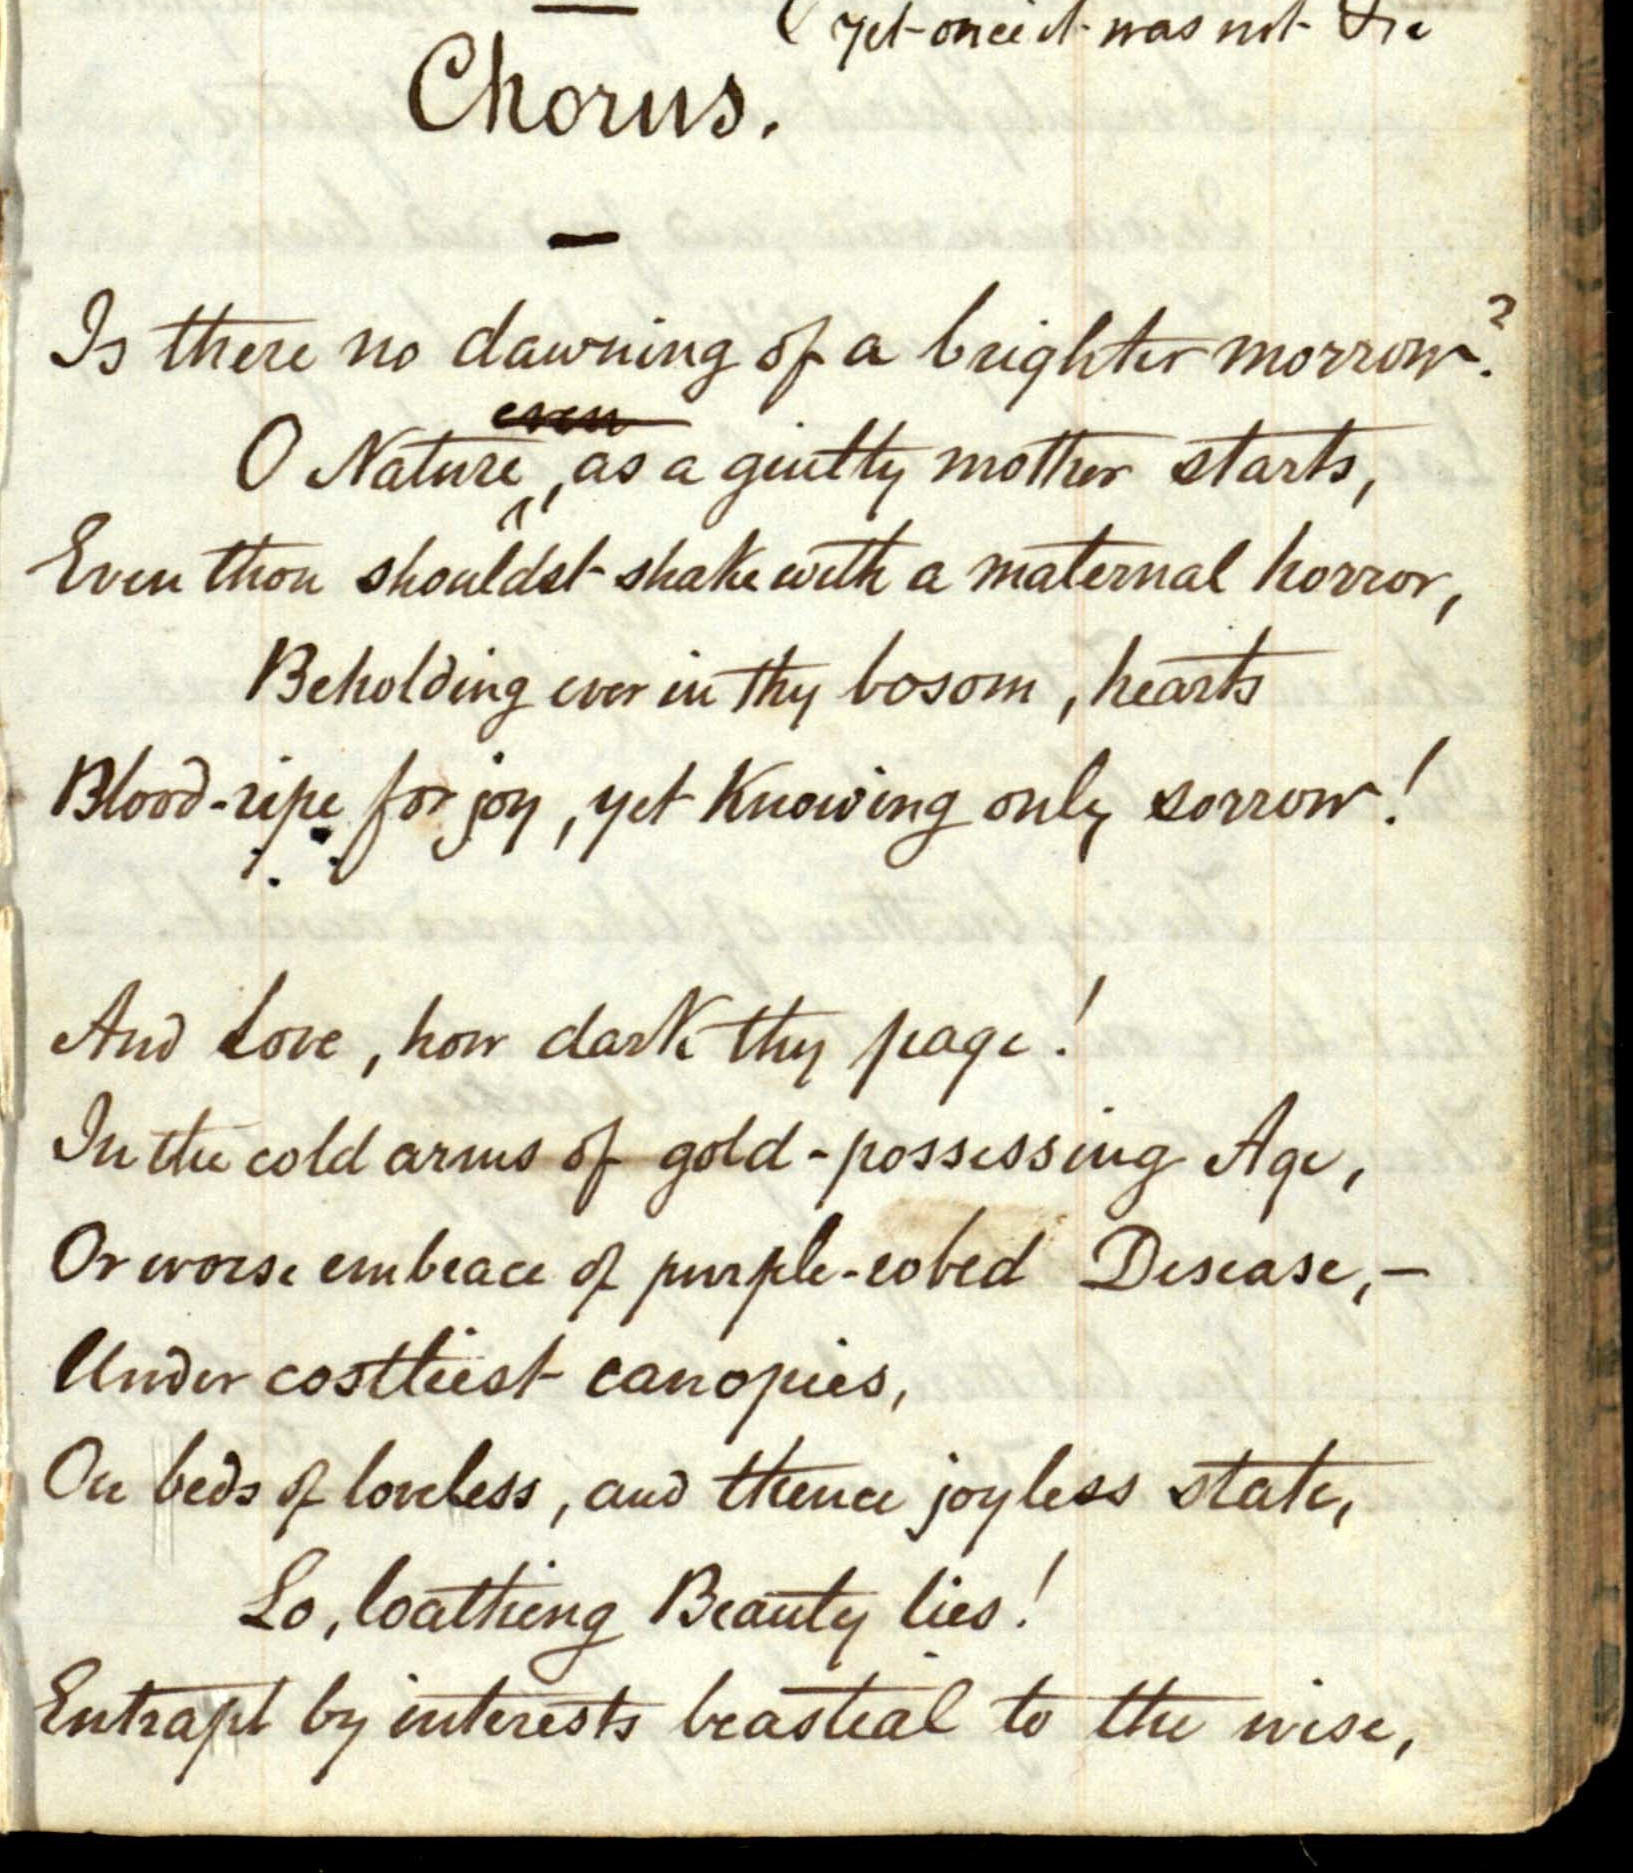 ( yet once it was not &c
Chorus.
Is there no dawning of a brighter morrow?
even
O Nature, as a guilty mother starts,
Even thou shouldst shake with a maternal horror,
Beholding ever in thy bosom, hearts
Blood-ripe for joy, yet knowing only sorrow!
And Love, how dark thy page!
In the cold arms of gold-possessing Age,
Or worse embrace of purple-robed Disease,—
Under costliest canopies,
On beds of loveless, and thence joyless state,
Lo, loathing Beauty lies!
Entrapt by interests beastial to the wise,